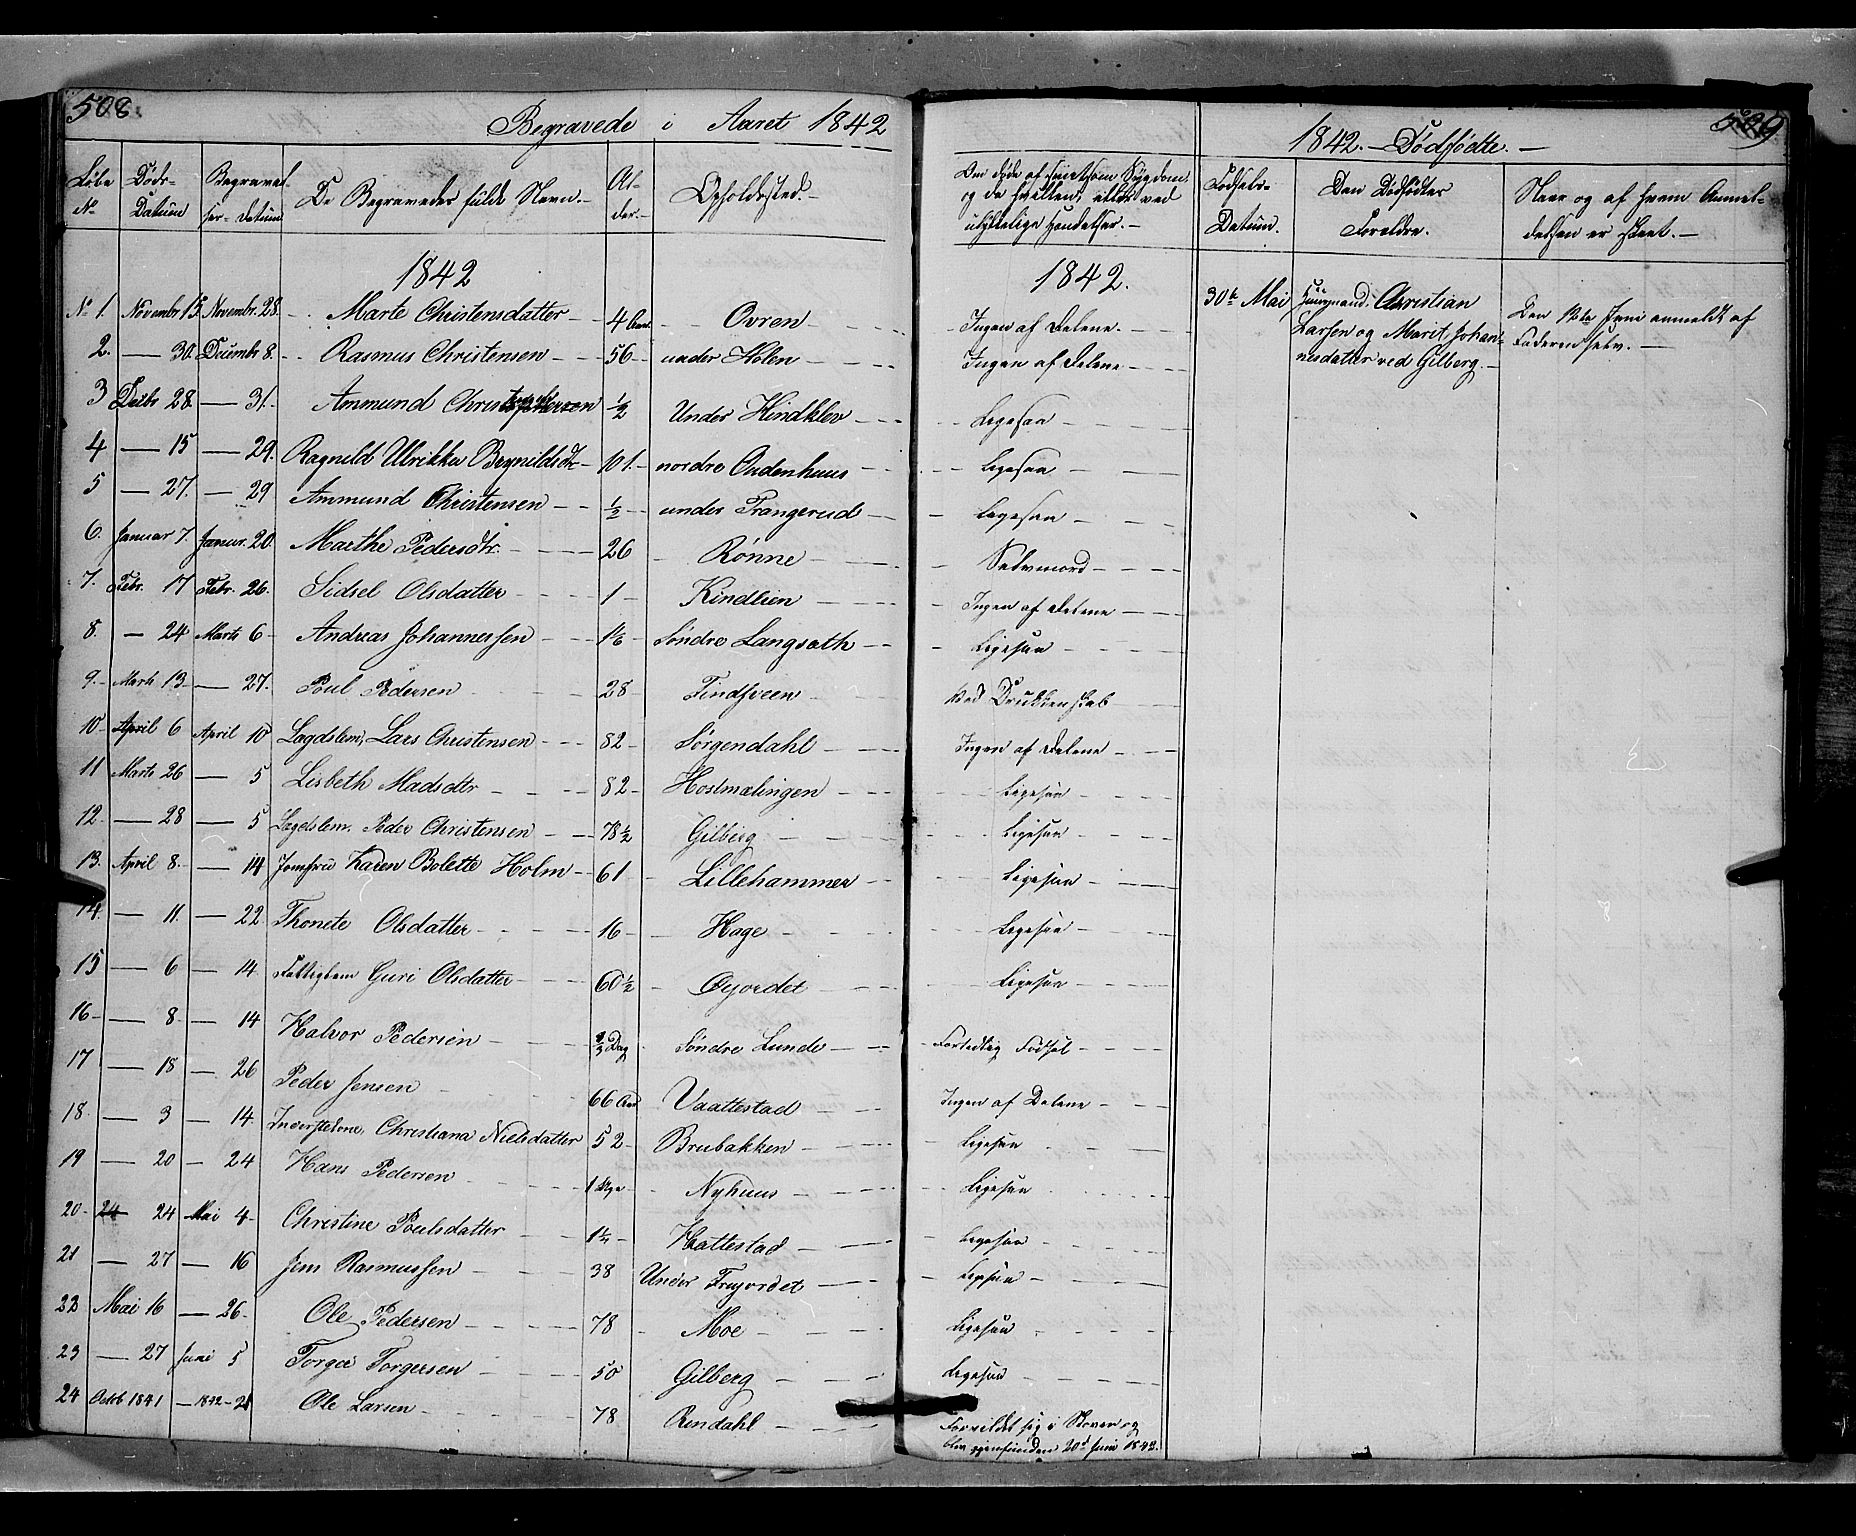 508.
Begravede i Aaret 1842
Løbe No
Døds-Datum
Begravelses-Datum
De Begravedes fulde Navn.
Alder.
Opholdssted.
Om døde af smitsom Sygdom, og da hvilken, eller ved ulykkelige Hændelser.
1842
1842.
No 1. Novembr 15 Novembr. 28. Marte Christensdatter 4 Aar Ovren Ingen af Delene.
2. — 30. Decembr 8. Rasmus Christensen 56 under Holen Ingen af Delene
3 Decbr 28. — 31. Ammund ½ Under Hindklev Ligesaa
4 — 15 — 29. Ragnild Ulrikka Brynildsdtr 101. nordre Oudenhuus Ligesaa
5 — 27. — 29 Ammund Christensen ½ under Trangerud Ligesaa
6. Januar 7. Januar. 20. Marthe Pedersdtr. 26 Rønne Selvmord
7. Febr. 17 Febr. 26. Sidsel Olsdatter 1 Kindlien Ingen af Delene
8. — 24 Marts 6 Andreas Johannessen Søndre Langsæth Ligesaa
9. Marts 13 — 27. Poul Pedersen 28 Tindsveen Ved Drukkenskab
10 April 6 April 10 Lægdslem, Lars Christensen 82 Sørgendahl Ingen af Delene
11 Marts 26 — 5 Lisbeth Madsdtr 82 Hostmælingen Ligesaa
12. — 28 — 5 Lægdslem. Peder Christensen 78½ Gilberg Ligesaa
13. April 8. — 14 Jomfru Karen Bolette Holm 61 Lillehammer Ligesaa
14. — 11. — 22 Thonete Olsdatter 16 Hage Ligesaa
15 — 6 — 14 Fattiglem Guri Olsdatter 60½ Øyordet Ligesaa
16 — 8 — 14 Halvor Pedersen Dag Søndre Lunde Fortidlig Fødsel
17 — 18 — 26 Peder Jensen 66 Aar Vaattestad Ingen af Delene
18. — 3 — 14. Christiana Nielsdatter 52 Brubakken Ligesaa
19 — 20 — 24 Hans Pedersen 1 Uge Nyhuus Ligesaa
20 24 24 Mai 4 Christine Poulsdatter 1¼ Hattestad Ligesaa
21 — 27 — 16 Jens Rasmussen 38 Under Frujordet Ligesaa
22 Mai 16 — 26 Ole Pedersen 78 Moe Ligesaa
23 — 27 Juni 5 Torger Torgersen 50 Gilberg Ligesaa
24 Octob 1841 — 1842 — 21 Ole Larsen 78 Rindahl Forvildet sig i Skoven og
blev gjenfunden 20d Juni 1842.
509
1842. — Dødfødte. —
Fødsels-Datum.
Den Dødfødtes Forældre.
Naar og af hvem Anmeldelsen er skeet. —
30te Mai Huusmand. Christian
Larsen og Marit Johannesdatter ved Gilberg. —
Den 12te Juni anmeldt af
Faderen selv. —